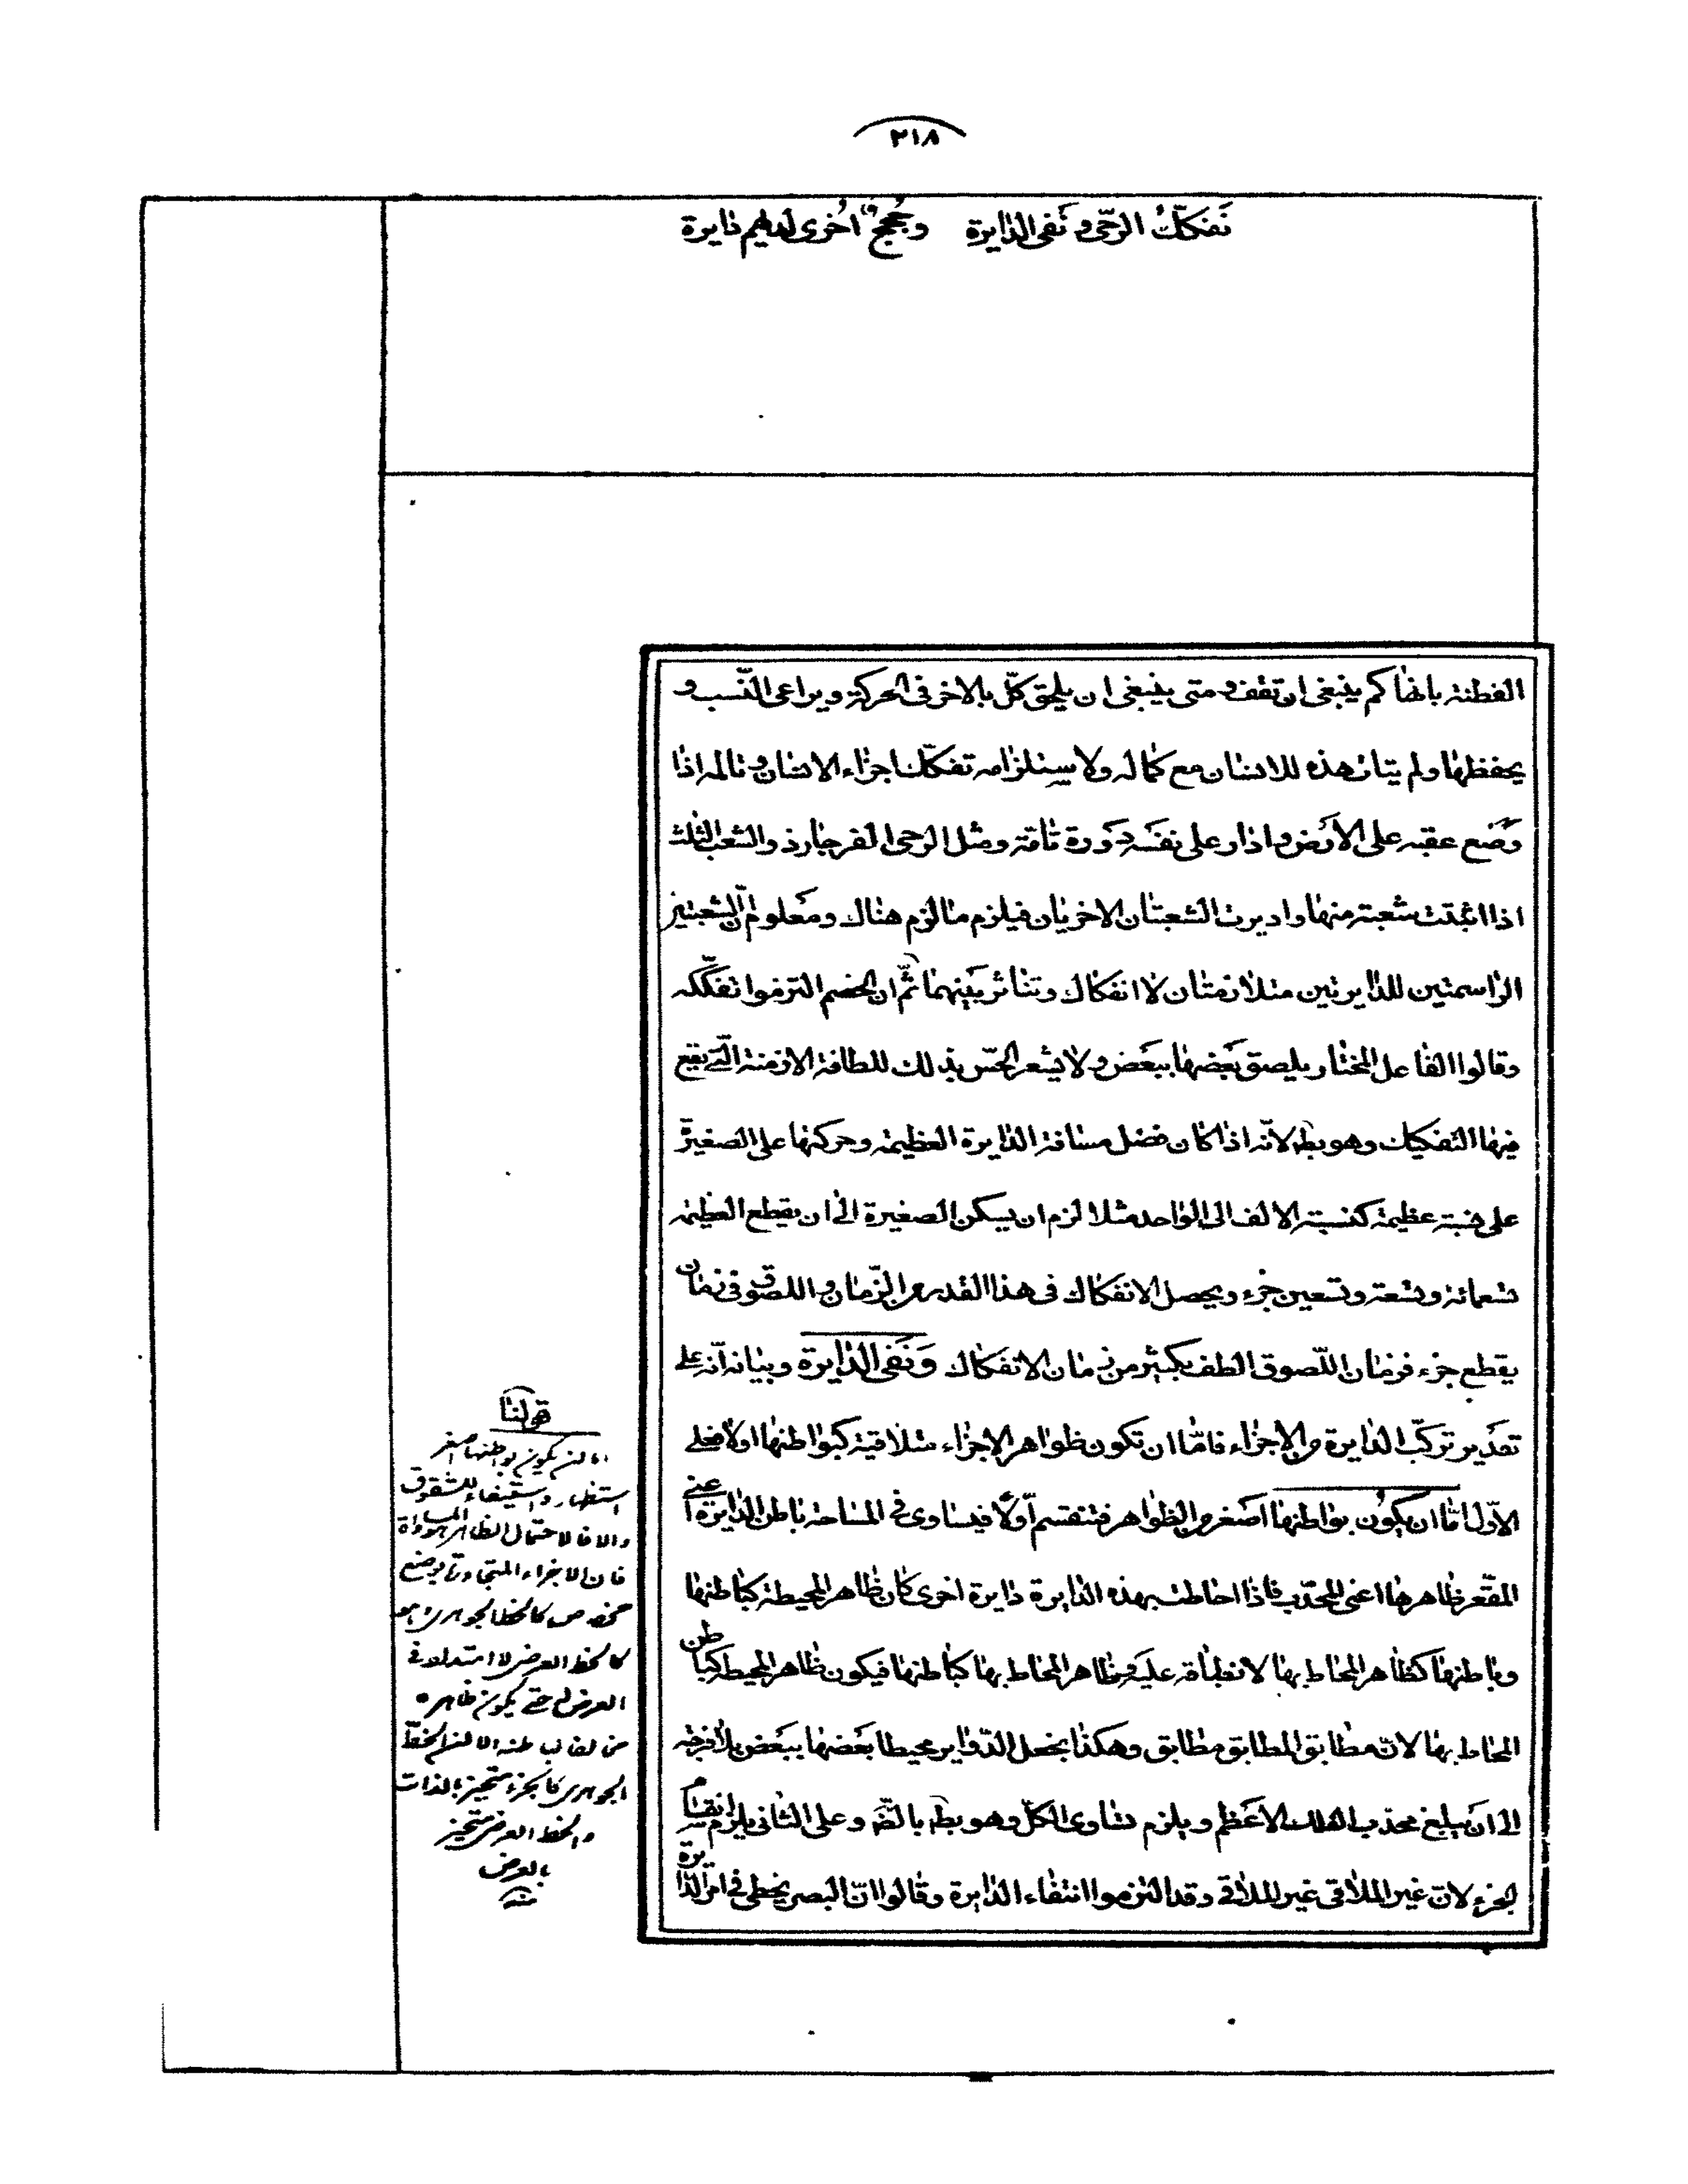 ٢١٨
تَفَكّكُ الرّحى و نَفى الدّايرة وحُججٌ اُخرى لديهم دايرة
الفطنة بانها كم ينبغى ان تقف ومتى ينبغى ان يلحق كلّ بالاخر فى الحركة ويراعى النّسب و
يحفظها ولم يتات هذه للانسان مع كماله ولاستلزامه تفكّك اجزاء الانسان وتالمه اذا
وَضع عقبه على الاَرض و ادار على نفسه دَورة تامّة ومثل الرحى الفرجار ذو الشعب الثلث
اذا اثبتت شعبة منها و اديرت الشعبتان الاخريان فيلزم ما لزم هناك ومَعلوم انّ الشعبتين
الراسمتين للدايرتين متلازمتان لا انفكاك وتناثر بَينهما ثمّ ان الخصم التزموا تفكّكه
وقالوا الفاعل المختار يلصق بَعضها ببَعض و لا يشعر الحسّ بذلك للطافة الازمنة الّتى يقع
فيها التفكيك وهو بط لانّه اذا كان فضل مسافة الدايرة العظيمة وحركتها على الصغيرة
على نسبة عظيمة كنسبة الالف الى الواحد مثلا لزم ان يسكن الصغيرة الى ان يقطع العظيمة
تسعمائة وتسعة وتسعين جزء ويحصل الانفكاك فى هذا القدر من الزّمان و اللصوق فى زمان
يقطع جزء فزمان اللّصوق الطف بكثير من زمان الانفكاك وَنَفى الدّايرة وبيانه انّه على
تقدير تركّب الدايرة من الاجزاء فامّا ان تكون ظواهر الاجزاء متلاقية كبواطنها اولا فعلى
الاوّل امّا ان يكون بواطنها اصغر من الظواهر فتنقسم اَولا فيساوى فى المساحة باطن الدايرة اعنى
المقعّر ظاهرها اعنى المحدّب فاذا احاطت بهذه الدايرة دايرة اخرى كان ظاهر المحيطة كباطنها
وباطنها كظاهر المحاط بها لانطباقه عليه وظاهر المحاط بها كباطنها فيكون ظاهر المحيطة كباطن
المحاط بها لانّ مطابق المطابق مطابق وهكذا يجعل الدّواير محيطا بَعضها ببَعض بلا فرجة
الى ان يبلغ محدّب الفلك الاعظم ويلزم تساوى الكلّ وهو بط بالضّرورة وعلى الثانى يلزم انقسام
الجزء لان غير الملاقى غير الملاقى وقد التزموا انتفاء الدايرة وقالوا انّ البصر يخطى فى امر الدايرة
قولنا
اما ان يكون بواطنها اصغر
استظهار و استيفاء للشقوق
والا فالاحتمال الظاهر هو المساواة
فان الاجزاء المتجاورة بوضع
مخصوص كالخط الجوهرى وهو
كالخط العرضى لا امتداد له فى
العرض حتى يكون ظاهره
مخالفا لباطنه الا ان الخط
الجوهرى كالجزء متحيز بالذات
والخط العرضى متحيز
بالعرض
منه